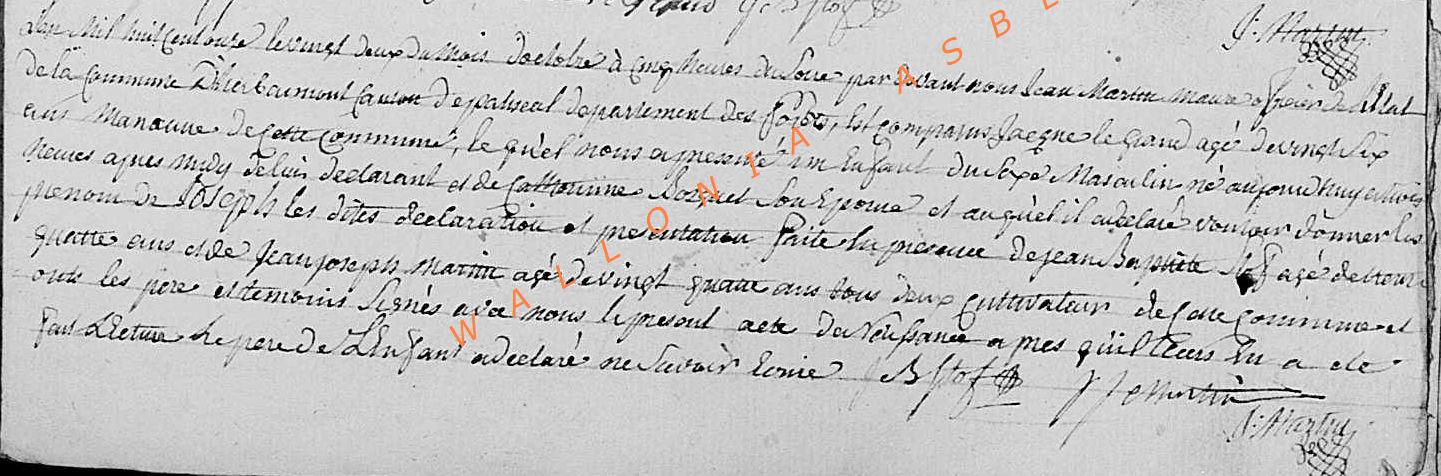 J: Martin
L'an Mil huit Cent onze le vingt deux du Mois d'octobre à Cinq heures du Soire par devant nous Jean Martin maire officier de l'Etat
de la Commune d'herbeumont Canton de paliseul departement des forêts, Est Comparus Jacque le grand agé de vingt Six
ans Manœuvre de Cette Commune, le quel nous a presenté un Enfant du Sexe Masculin né aujourdhuy a trois
heures apres midy de lui declarant et de Catherinne Son Epouse et au quel il a declaré vouloir donner les
prenom de Joseph les dites declaration et presentation faite En presence de jean Baptiste Stof agé de trente
quatre ans et de Jean joseph Martin agé de vingt quatre ans tous deux Cultivateur de Cette Commune et
ont les pere et temoins Signés avec nous le present acte de Naissance apres qu'il leurs En a ete
fait Lecture le pere de L'Enfant a declaré ne Savoir Ecrire J B Stof J J Martin
J: Martin
WALLONIA ASBL